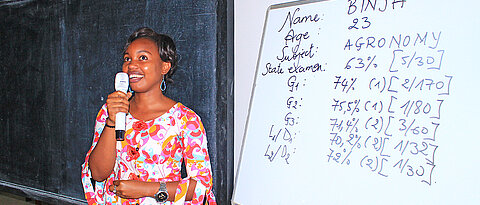 Name: BINJA
Age: 23
Subject: AGRONOMY
State examen: 63% [5/30]
G1: 74% (1) [2/170]
G2: 75,5% (1) [1/80]
G3: 71,4% (2) [3/60]
L1/D1: 70,2% (2) [1/32]
L2/D2: 72% (2) [1/30]